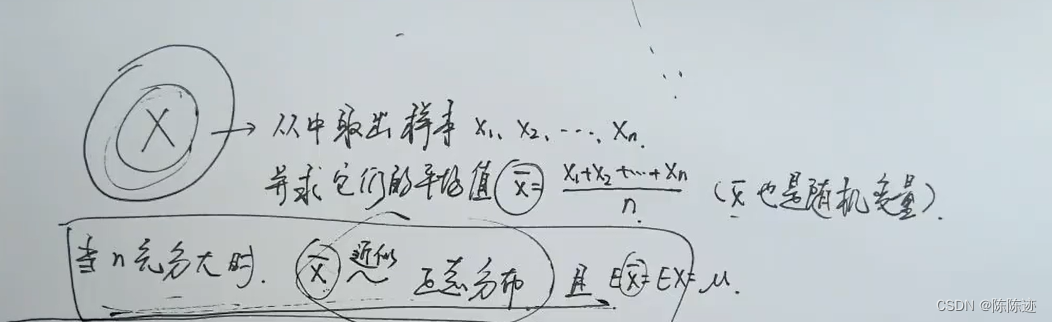 X → 从中取出样本 X₁、X₂、…、Xn.
并求它们的平均值 x̄ = (X₁+X₂+…+Xn)/n (x̄ 也是随机变量).
当n充分大时. x̄ 近似~ 正态分布 且 Ex̄=EX=μ.
CSDN @陈陈迹